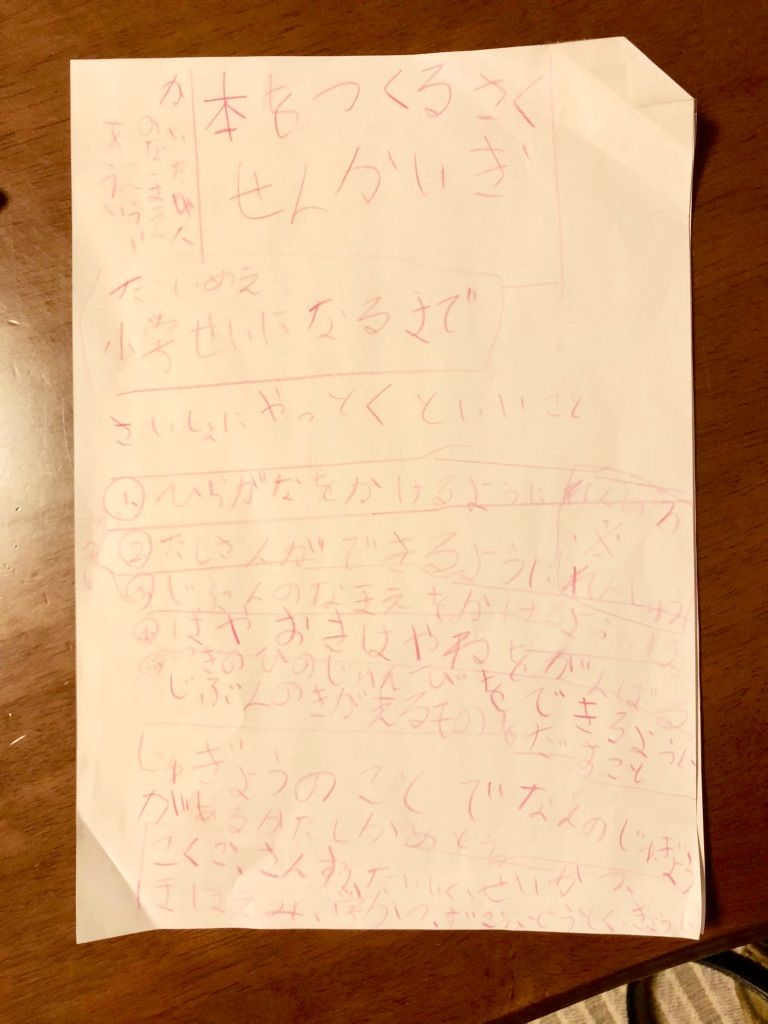 本をつくるさく
せんかいぎ
かいた人
のなまえ
だいめえ
小学せいになるまで
さいしょにやっとくといいこと
① ひらがなをかけるように
② たしざんができるように
③ じぶんのなまえをかけるように
④ はやおきはやねをがんばる
⑤ つぎのひのじゅんびをできるように
じぶんのきがえるものをだすこと
じゅぎょうのことでなんのじゅぎょう
があるかたしかめとう。
こくご、さんすう、たいいく、せいかつ、
ほほえみ、学かつ、ずこう、どうとく、ぎょうじ